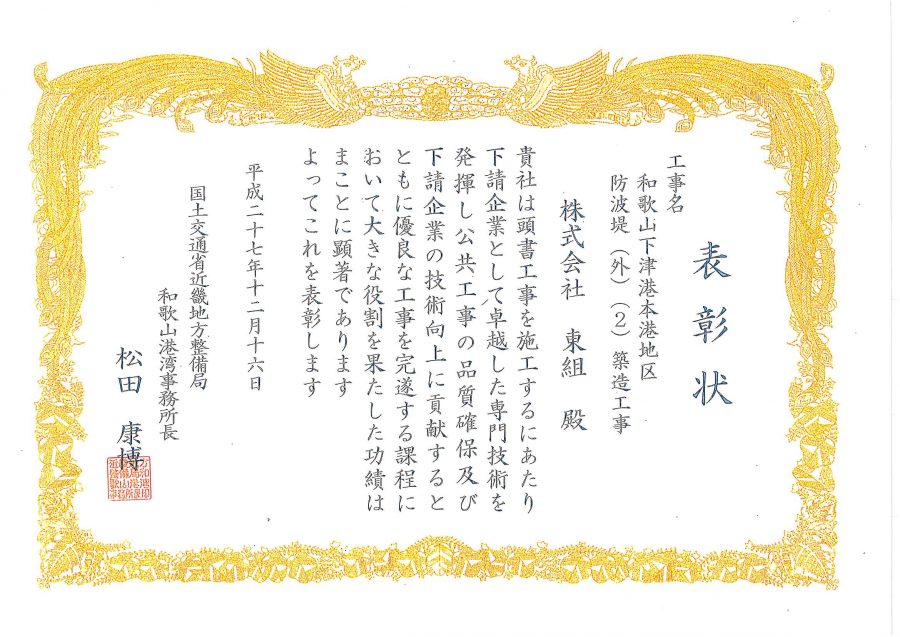 表彰状
工事名
和歌山下津港本港地区
防波堤（外）（2）築造工事
株式会社　東組　殿
貴社は頭書工事を施工するにあたり
下請企業として卓越した専門技術を
発揮し公共工事の品質確保及び
下請企業の技術向上に貢献すると
ともに優良な工事を完遂する課程に
おいて大きな役割を果たした功績は
まことに顕著であります
よってこれを表彰します
平成二十七年十二月十六日
国土交通省近畿地方整備局
和歌山港湾事務所長
松田　康博